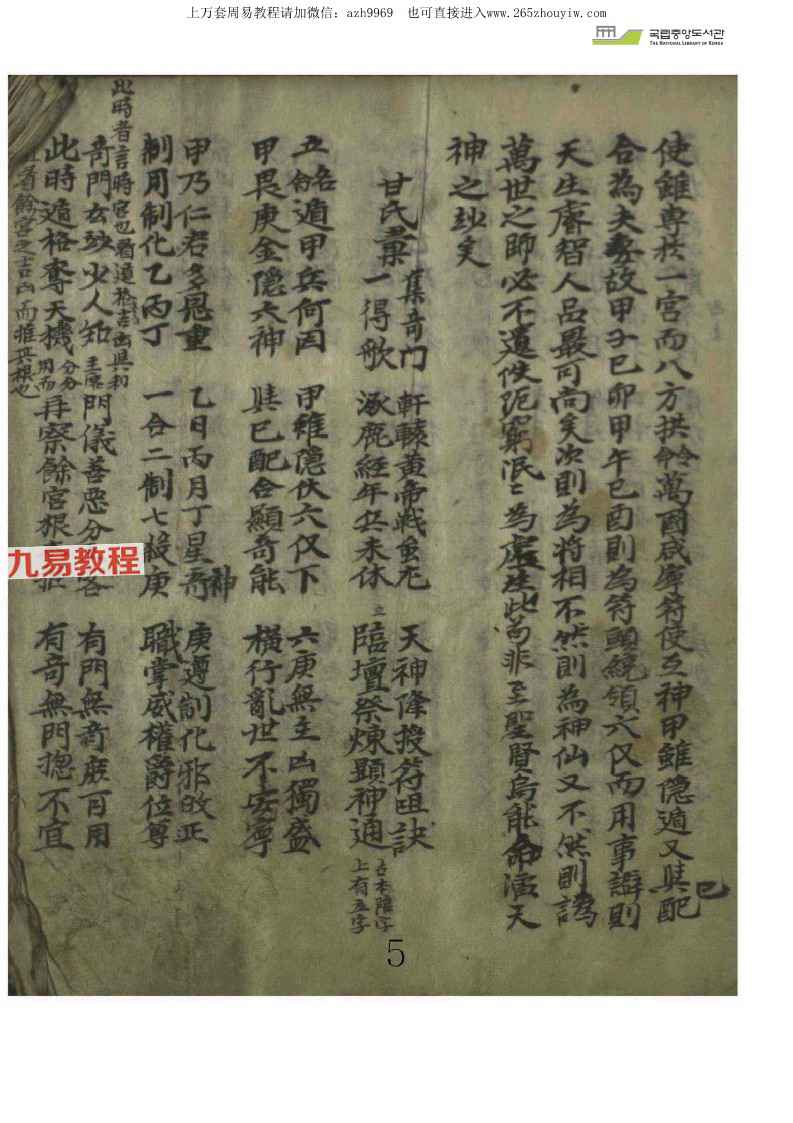 上万套周易教程请加微信：azh9969 也可直接进入www.265zhouyiw.com
국립중앙도서관
THE NATIONAL LIBRARY OF KOREA
使雖專於一宮而八方拱命萬國咸寧符使互神甲雖隱遁又與己配
合為夫妻故甲子己卯甲午己酉則為符頭統領六仪而用事辭則
天生睿智人品最可尚矣次則為將相不然則為神仙又不然則謫
萬世之師必不遺佚阨窮泯〻為 此苟非至聖賢烏能命滔天
神之妙矣
甘氏橐
集奇門 軒轅黃帝戰蚩尤 天神降授符呾訣
一得歌 涿鹿經年兵未休 臨壇祭煉顯神通
古本隆字
上有五字
立名遁甲兵何因 甲雖隱伏六仪下 六庚無主凶獨盛
甲畏庚金隱六神 與己配合顯奇能 橫行亂世不安寧
甲乃仁君多恩重 乙日丙月丁星奇神 庚遵制化邪改正
制用制化乙丙丁 一合二制七殺庚 職掌威權爵位尊
此時者言時宮也看遁格吉凶與初
奇門玄妙少人知 門儀善惡分 客 有門無奇庶可用
此時遁格奪天機 再察餘宮根 有奇無門揔不宜
看餘宮之吉凶而推其根也
九易教程
5